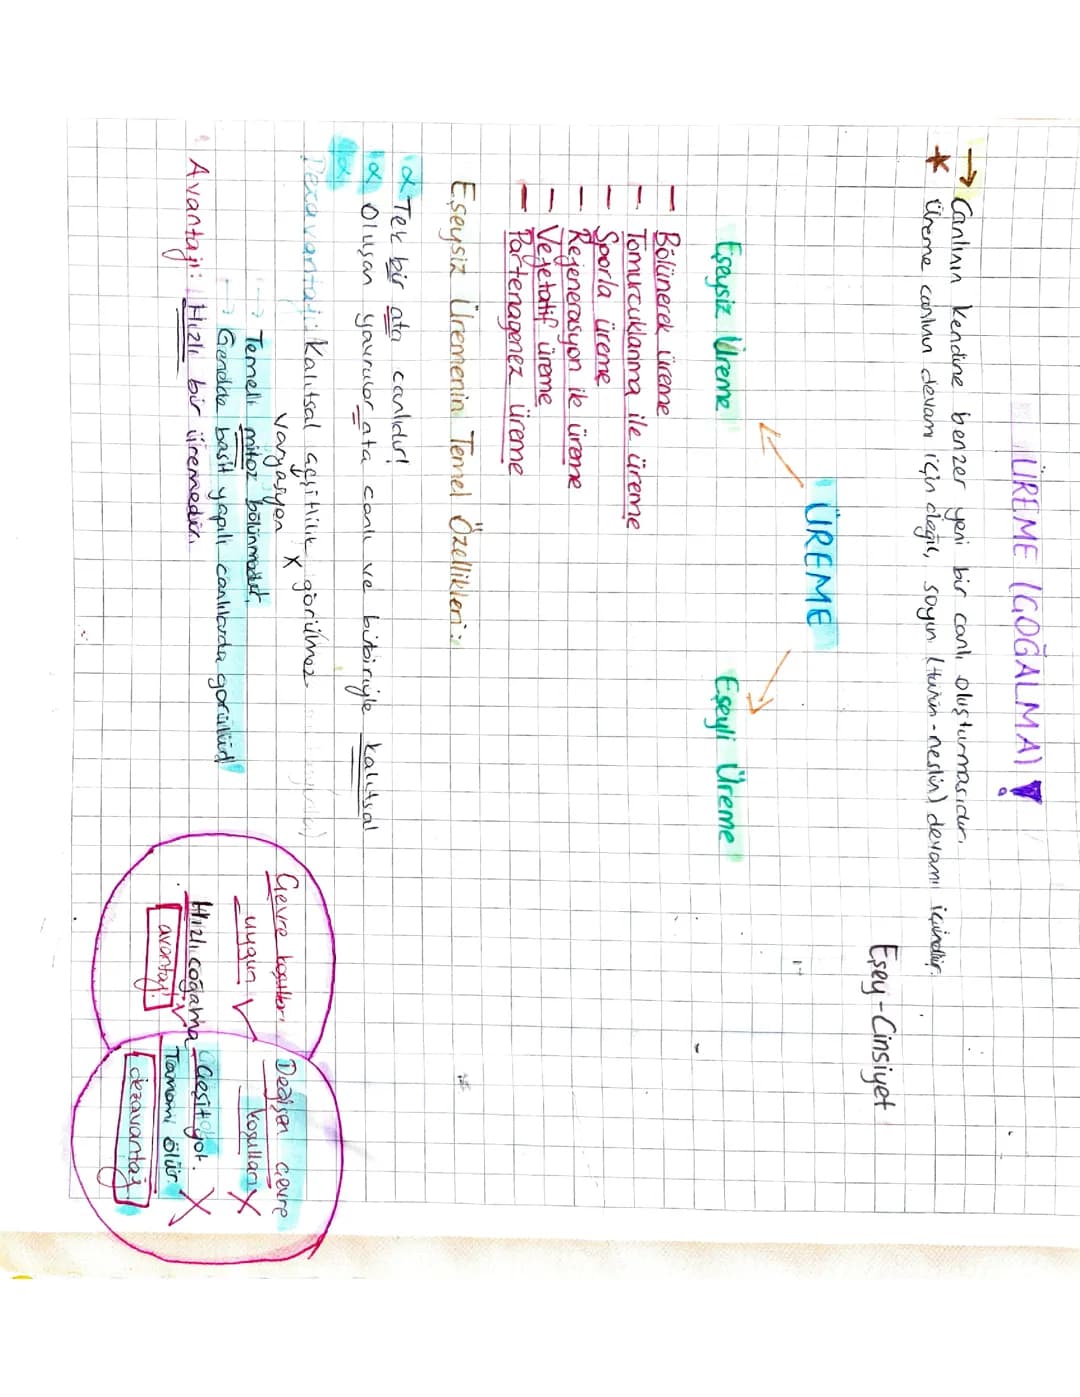 ÜREME (ÇOĞALMA)!
→ Canlının kendine benzer yeni bir canlı oluşturmasıdır.
* Üreme canlının devamı için değil, soyun (türün-neslin) devamı içindir.
Eşey-Cinsiyet
ÜREME
Eşeysiz Üreme
Eşeyli Üreme
— Bölünerek üreme
— Tomurcuklanma ile üreme
— Sporla üreme
— Rejenerasyon ile üreme
— Vejetatif üreme
— Partenagenez üreme
Eşeysiz Üremenin Temel Özellikleri:
α Tek bir ata canlıdır!
α Oluşan yavrular ata canlı ve birbiriyle kalıtsal
α
Dezavantajı: Kalıtsal çeşitlilik görülmez
varyasyon X
→ Temeli mitoz bölünmedir.
→ Genelde basit yapılı canlılarda görülür!
Avantajı: Hızlı bir üremedir.
Çevre koşulları
uygun ✓
Hızlı çoğalma
avantaj!
Değişen çevre
koşulları X
Çeşit yok.
Tamamı ölür. X
dezavantaj!